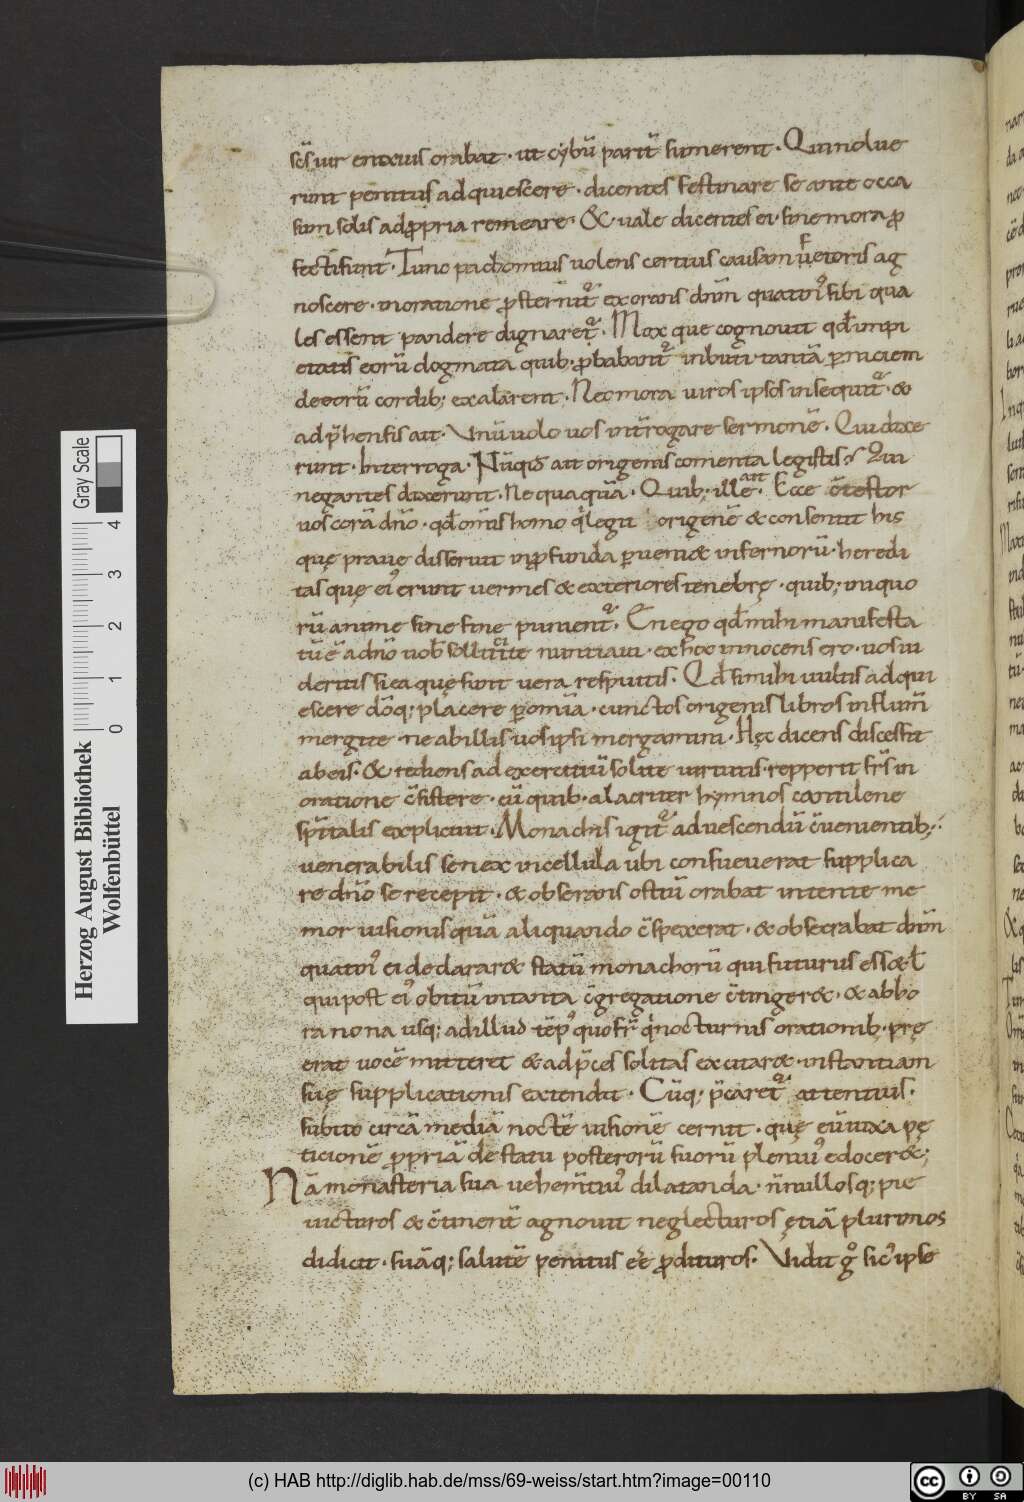 scs̄ uir enixius orabat · ut cybū parū sumerent · Qui nolue
runt penitus adquiescere · dicentes festinare se ante occa
sum solis ad ꝓpria remeare · & uale dicentes ei · sine mora ꝓ
fecti sunt · Tunc pachomius uolens certius causam fetoris ag
noscere · in oratione ꝓsternit᷑ exorans dn̄m quatin᷒ sibi qua
les essent pandere dignaret᷑ · Mox que cognouit qd̄ impi
etatis eorū dogmata quib· ꝓbabant᷑ inbuti tantā ꝑniciem
de eorū cordib; exalarent · Nec mora uiros ipsos insequit᷑ · &
adp̄hensis ait · Vnū uolo uos int̄rogare sermonē · Qui dixe
runt · Interroga · Nūqid ait origenis comenta legistis? Qui
negantes dixerunt · Nequaquā · Quib; ille ait · Ecce c̄testor
uos corā dn̄o · qd̄ om̄is homo q̄ legit origenē & consentit his
quę praue disseruit in ꝓfunda ꝑueni& infernorū · heredi
tasque ei᷒ erunt uermes & exteriores tenebrę · quib; iniquo
rū animę sine fine punient᷑ · En ego qd̄ mihi manifesta
tū ē a dn̄o uob̄ sollicite nuntiaui · ex hoc innocens ero · uos ui
deritis si ea quę sunt uera respuitis · Qd̄ si mihi uultis adqui
escere dōq; placere ꝑ omīa · cunctos origenis libros in flum̄
mergite · ne ab illis uos ipsi mergamini · Hęc dicens discessit
ab eis · & rediens ad exercitiū solite uirtutis · repperit fr̄s in
oratione c̄sistere · cū quib· alacriter hymnos cantilene
sp̄italis explicuit · Monachis igit᷑ ad uescendū c̄uenientib;
uenerabilis senex in cellula ubi consueuerat supplica
re dn̄o se recepit · & obserans ostiū orabat intente me
mor uisionis quā aliquando c̄spexerat · & obsecrabat dn̄m
quatin᷒ ei declarar& statū monachorū qui futurus ess& ł
qui post ei᷒ obitū in tanta c̄gregatione c̄tinger& · & ab ho
ra nona usq; ad illud tēp᷒ quo fr̄ q̄ nocturnis orationib· prę
erat uocē mitteret & ad p̄ces solitas excitar& · instantiam
suę supplicationis extendit · Cūq; p̄caret᷑ attentius ·
subito circā mediā noctē uisionē cernit · quę eū iuxa pę
ticionē ꝓpriā de statu posterorū suorū pleniu᷒ edocer&;
Nā monasteria sua uehem̄tiu᷒ dilatanda · n̄nullosq; pie
uicturos & c̄tinent̄ agnouit neglecturos ętiā plurimos
didicit · suāq; salutē penitus eē ꝓdituros · Vidit g᷒ sic᷒ ipse
Gray Scale
4
3
2
1
0
Herzog August Bibliothek
Wolfenbüttel
(c) HAB http://diglib.hab.de/mss/69-weiss/start.htm?image=00110
cc
BY SA